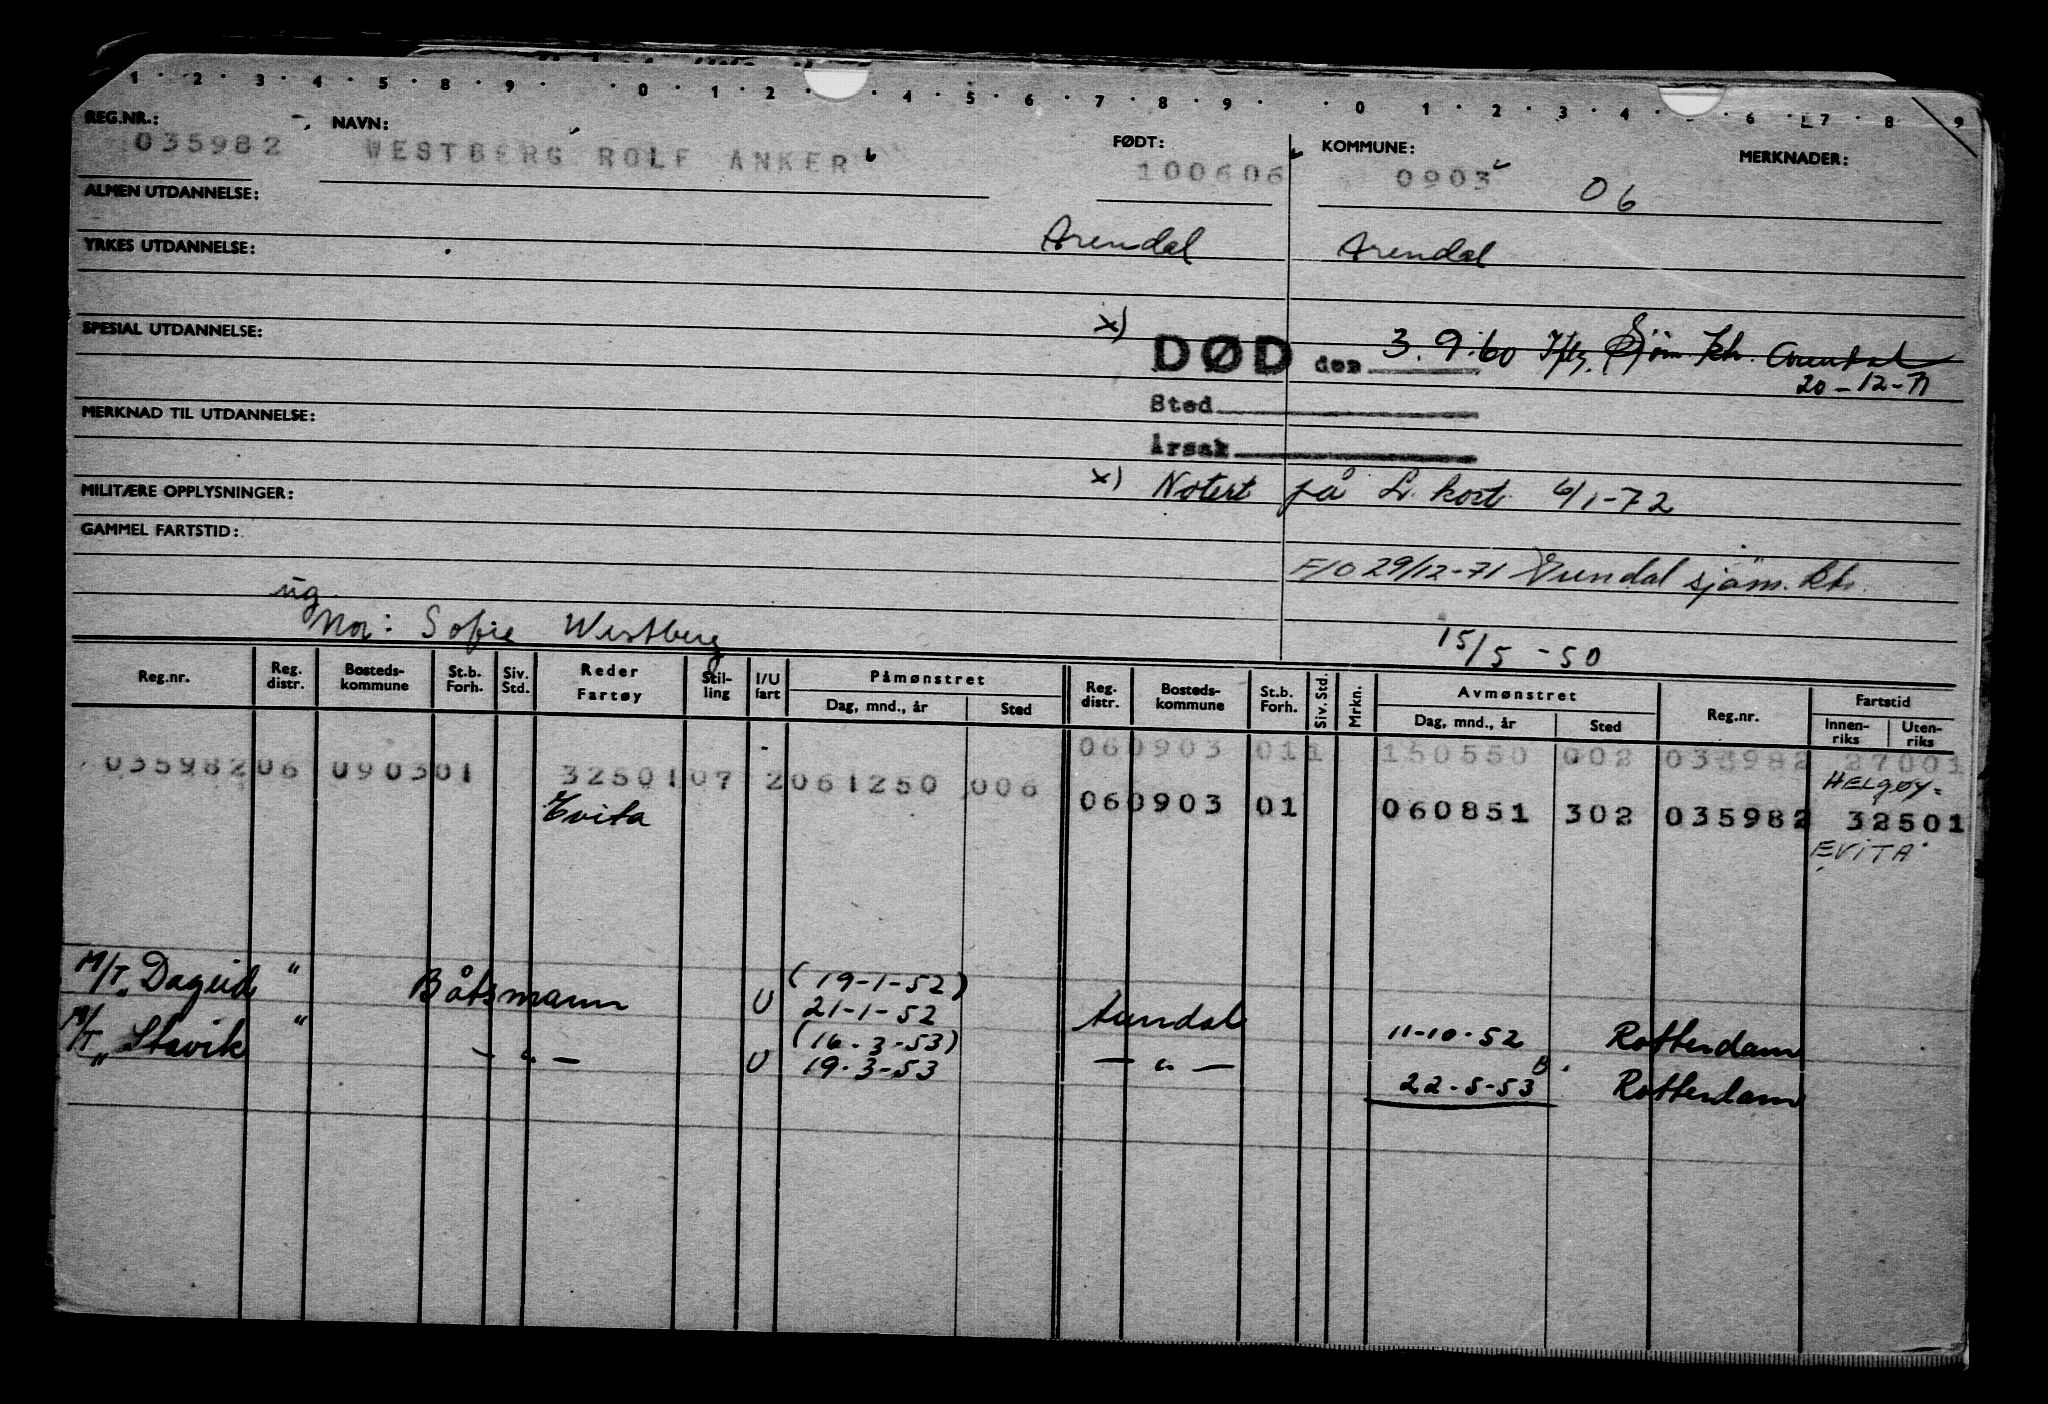 1 · 2 · 3 · 4 · 5 · 8 · 9 · · 0 · 1 · 2 · · 4 · 5 · 6 · 7 · 8 · 9 · · 0 · 1 · 2 · 3 · 4 · · 6 · 7 · 8 · 9
REG.NR.: NAVN: FØDT: KOMMUNE: MERKNADER:
035982 WESTBERG ROLF ANKER 100606 0903 06
ALMEN UTDANNELSE:
Arendal Arendal
YRKES UTDANNELSE:
SPESIAL UTDANNELSE:
x) DØD den 3.9.60 Iflg. Sjøm. ktr. Arendal
20-12-71
Sted
MERKNAD TIL UTDANNELSE:
Årsak
x) Notert på L. kort 6/1-72
MILITÆRE OPPLYSNINGER:
GAMMEL FARTSTID:
F/O 29/12-71 Arendal sjøm. ktr.
ug
Mor: Sofie Westberg
15/5-50
Reg.nr. Reg. distr. Bosteds-kommune St.b. Forh. Siv. Std. Reder Fartøy Stil-ling I/U fart Påmønstret Dag, mnd., år Sted Reg. distr. Bosteds-kommune St.b. Forh. Siv. Std. Mrkn. Avmønstret Dag, mnd., år Sted Reg.nr. Fartstid Innen-riks Uten-riks
060903 011 150550 002 035982 27001
HELGØY.
035982 06 0903 01 32501 07 2 061250 006
Evita
060903 01 060851 302 035982 32501
EVITA
M/T „Dageid" Båtsmann U (19-1-52)
21-1-52 Arendal 11-10-52 Rotterdam
M/T „Stavik" — „ — U (16-3-53)
19-3-53 — „ — 22-5-53 B. Rotterdam